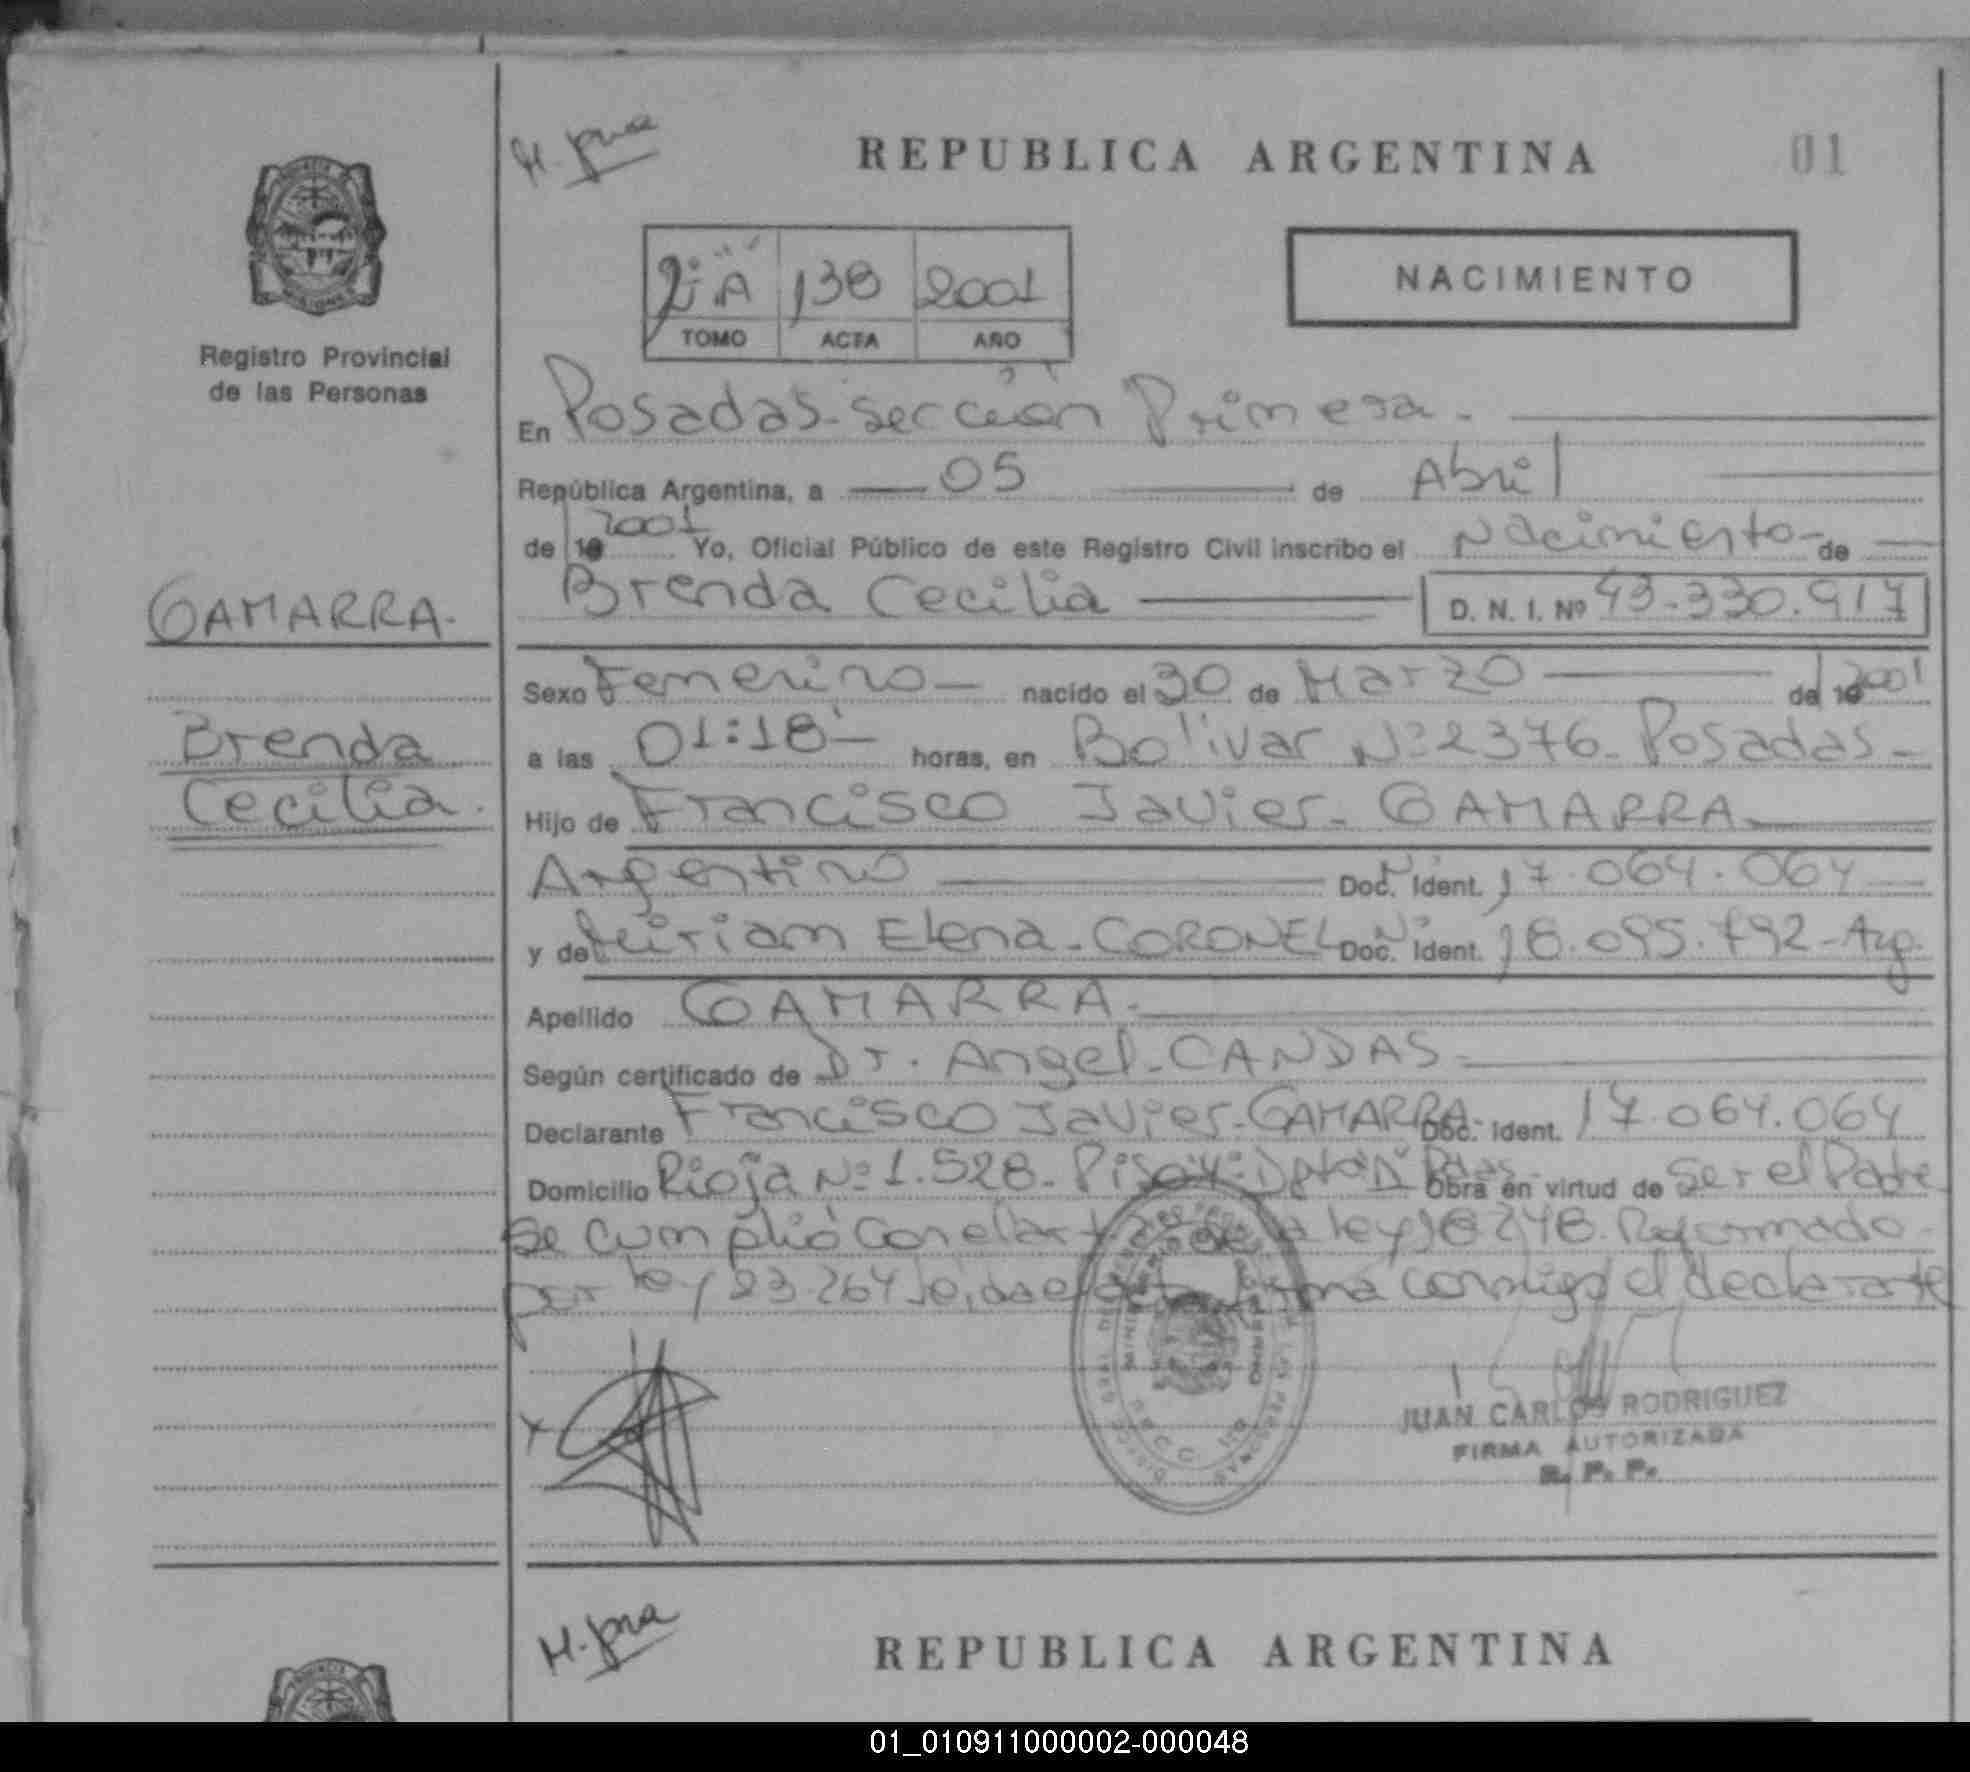 M. pna
REPUBLICA ARGENTINA
01
2º "A" 138 2001
TOMO ACTA AÑO
NACIMIENTO
Registro Provincial
de las Personas
En Posadas-sección Primera.
República Argentina, a 05 de Abril
de 19 2001 Yo, Oficial Público de este Registro Civil inscribo el Nacimiento de
GAMARRA.
Brenda Cecilia D. N. I. Nº 43.330.917
Sexo Femenino nacido el 30 de Marzo de 19 2001
Brenda
a las 01:18 horas, en Bolivar Nº 2376. Posadas
Cecilia.
Hijo de Francisco Javier. GAMARRA
Argentino Doc. Ident. 17.064.064
y de Miriam Elena. CORONEL Doc. Ident. 18.095.792-Arg.
Apellido GAMARRA.
Según certificado de Dr. Angel. CANDAS
Declarante Francisco Javier. GAMARRA Doc. Ident. 17.064.064
Domicilio Rioja Nº 1.528. Piso 4: Dpto "D" Pdas. Obra en virtud de ser el Padre
se cumplió con el art. de la ley 18248. Reformado
por ley 23.264 leída el acta firma conmigo el declarante
JUAN CARLOS RODRIGUEZ
FIRMA AUTORIZADA
R. P. P.
M. pna
REPUBLICA ARGENTINA
01_010911000002-000048